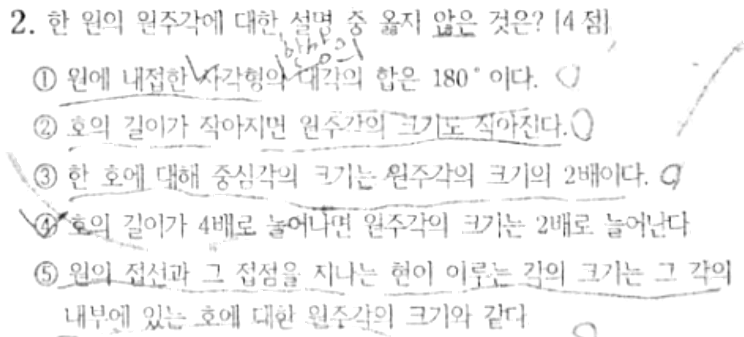 2. 한 원의 원주각에 대한 설명 중 옳지 않은 것은? [4점]
한 쌍의
① 원에 내접한 사각형의 대각의 합은 180°이다.
② 호의 길이가 작아지면 원주각의 크기도 작아진다.
③ 한 호에 대해 중심각의 크기는 원주각의 크기의 2배이다.
④ 호의 길이가 4배로 늘어나면 원주각의 크기는 2배로 늘어난다
⑤ 원의 접선과 그 접점을 지나는 현이 이루는 각의 크기는 그 각의
내부에 있는 호에 대한 원주각의 크기와 같다